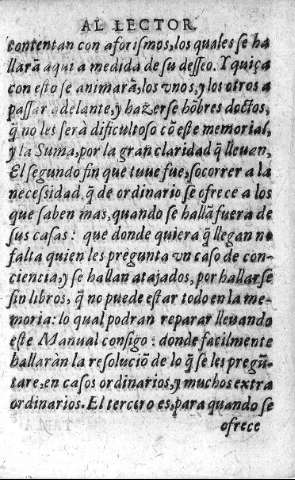 AL LECTOR.
contentan con aforismos, los quales se ha
llarã aqui a medida de su desseo. Y quiça
con esto se animarã, los vnos, y los otros a
passar adelante, y hazerse hõbres doctos,
q̃ no les será dificultoso cõ este memorial,
y la Suma, por la gran claridad q̃ lleuan,
El segundo fin que tuue fue, socorrer a la
necessidad q̃ de ordinario se ofrece a los
que saben mas, quando se hallã fuera de
sus casas: que donde quiera q̃ llegan no
falta quien les pregunta vn caso de con-
ciencia, y se hallan atajados, por hallarse
sin libros, q̃ no puede estar todo en la me-
moria: lo qual podran reparar lleuando
este Manual consigo: donde facilmente
hallaràn la resoluciõ de lo q̃ se les pregũ-
tare, en casos ordinarios, y muchos extra
ordinarios. El tercero es, para quando se
ofrece